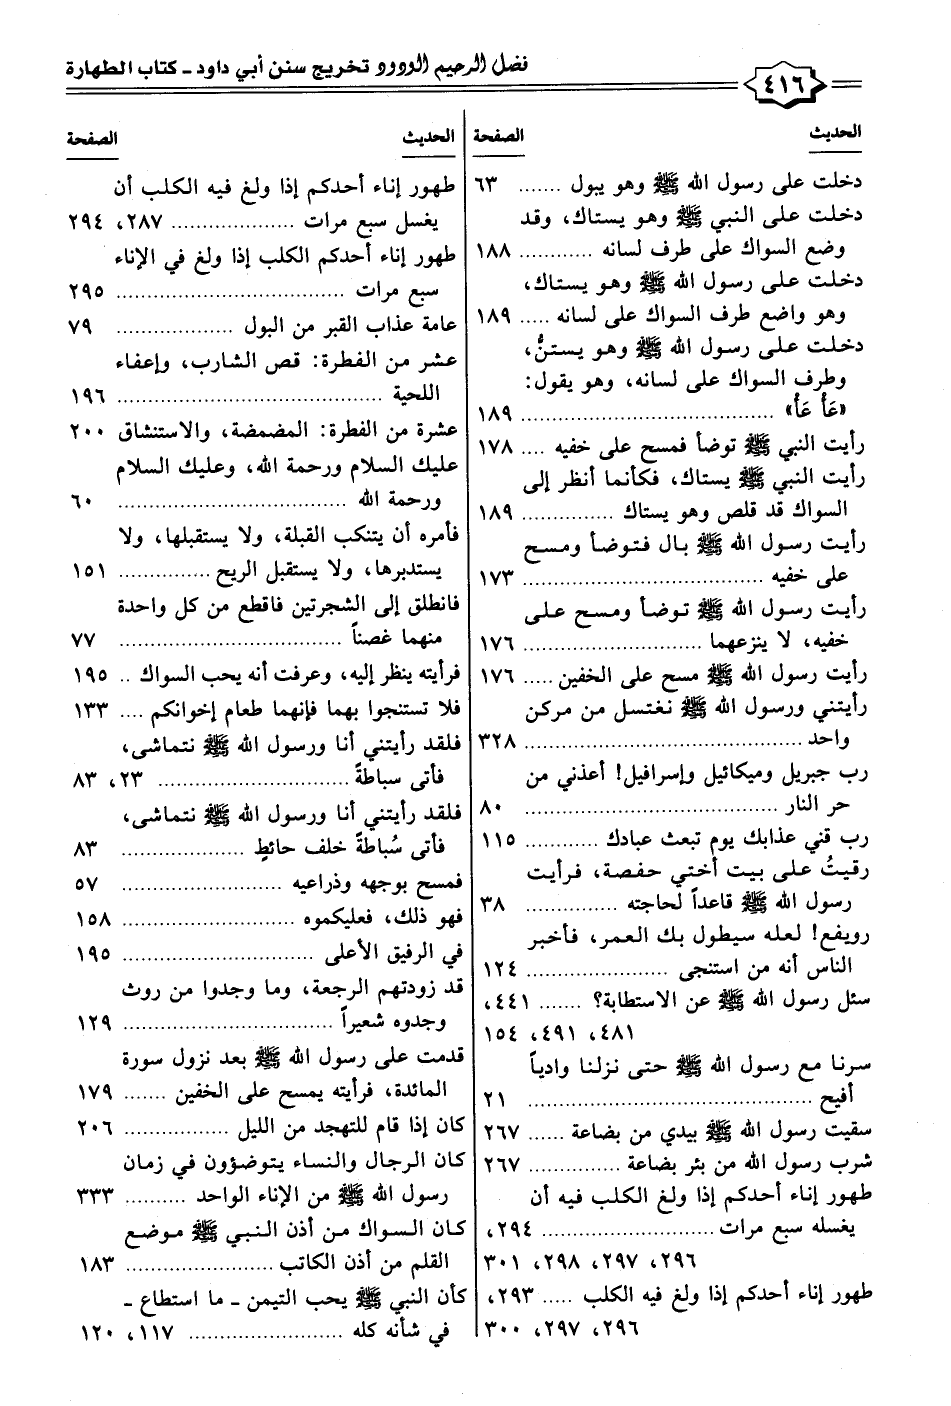 ٤١٦ فضل الرحيم الودود تخريج سنن أبي داود - كتاب الطهارة
الحديث الصفحة
دخلت على رسول الله ﷺ وهو يبول ....... ٦٣
دخلت على النبي ﷺ وهو يستاك، وقد
وضع السواك على طرف لسانه ............ ١٨٨
دخلت على رسول الله ﷺ وهو يستاك،
وهو واضع طرف السواك على لسانه ..... ١٨٩
دخلت على رسول الله ﷺ وهو يستنُّ،
وطرف السواك على لسانه، وهو يقول:
«عَأْ عَأْ» .......................................... ١٨٩
رأيت النبي ﷺ توضأ فمسح على خفيه .... ١٧٨
رأيت النبي ﷺ يستاك، فكأنما أنظر إلى
السواك قد قلص وهو يستاك ............... ١٨٩
رأيت رسول الله ﷺ بال فتوضأ ومسح
على خفيه ........................................ ١٧٣
رأيت رسول الله ﷺ توضأ ومسح على
خفيه، لا ينزعهما .............................. ١٧٦
رأيت رسول الله ﷺ مسح على الخفين ..... ١٧٦
رأيتني ورسول الله ﷺ نغتسل من مركن
واحد .............................................. ٣٢٨
رب جبريل وميكائيل وإسرافيل! أعذني من
حر النار .......................................... ٨٠
رب قني عذابك يوم تبعث عبادك ............ ١١٥
رقيتُ على بيت أختي حفصة، فرأيت
رسول الله ﷺ قاعداً لحاجته ............... ٣٨
رويفع! لعله سيطول بك العمر، فأخبر
الناس أنه من استنجى ........................ ١٢٤
سئل رسول الله ﷺ عن الاستطابة؟ ....... ٤٤١،
٤٨١، ٤٩١، ١٥٤
سرنا مع رسول الله ﷺ حتى نزلنا وادياً
أفيح ................................................ ٢١
سقيت رسول الله ﷺ بيدي من بضاعة ...... ٢٦٧
شرب رسول الله من بئر بضاعة ............... ٢٦٧
طهور إناء أحدكم إذا ولغ الكلب فيه أن
يغسله سبع مرات ............................. ٢٩٤،
٢٩٦، ٢٩٧، ٢٩٨، ٣٠١
طهور إناء أحدكم إذا ولغ فيه الكلب ..... ٢٩٣،
٢٩٦، ٢٩٧، ٣٠٠
الحديث الصفحة
طهور إناء أحدكم إذا ولغ فيه الكلب أن
يغسل سبع مرات .................... ٢٨٧، ٢٩٤
طهور إناء أحدكم الكلب إذا ولغ في الإناء
سبع مرات ...................................... ٢٩٥
عامة عذاب القبر من البول ................... ٧٩
عشر من الفطرة: قص الشارب، وإعفاء
اللحية ............................................ ١٩٦
عشرة من الفطرة: المضمضة، والاستنشاق ٢٠٠
عليك السلام ورحمة الله، وعليك السلام
ورحمة الله ...................................... ٦٠
فأمره أن يتنكب القبلة، ولا يستقبلها، ولا
يستدبرها، ولا يستقبل الريح ............... ١٥١
فانطلق إلى الشجرتين فاقطع من كل واحدة
منهما غصناً ..................................... ٧٧
فرأيته ينظر إليه، وعرفت أنه يحب السواك .. ١٩٥
فلا تستنجوا بهما فإنهما طعام إخوانكم .... ١٣٣
فلقد رأيتني أنا ورسول الله ﷺ نتماشى،
فأتى سباطةً ................................ ٢٣، ٨٣
فلقد رأيتني أنا ورسول الله ﷺ نتماشى،
فأتى سُباطةً خلف حائطٍ ..................... ٨٣
فمسح بوجهه وذراعيه ........................... ٥٧
فهو ذلك، فعليكموه ............................. ١٥٨
في الرفيق الأعلى ................................ ١٩٥
قد زودتهم الرجعة، وما وجدوا من روث
وجدوه شعيراً ................................... ١٢٩
قدمت على رسول الله ﷺ بعد نزول سورة
المائدة، فرأيته يمسح على الخفين ....... ١٧٩
كان إذا قام للتهجد من الليل .................. ٢٠٦
كان الرجال والنساء يتوضؤون في زمان
رسول الله ﷺ من الإناء الواحد .......... ٣٣٣
كان السواك من أذن النبي ﷺ موضع
القلم من أذن الكاتب ......................... ١٨٣
كأن النبي ﷺ يحب التيمن - ما استطاع -
في شأنه كله .......................... ١١٧، ١٢٠